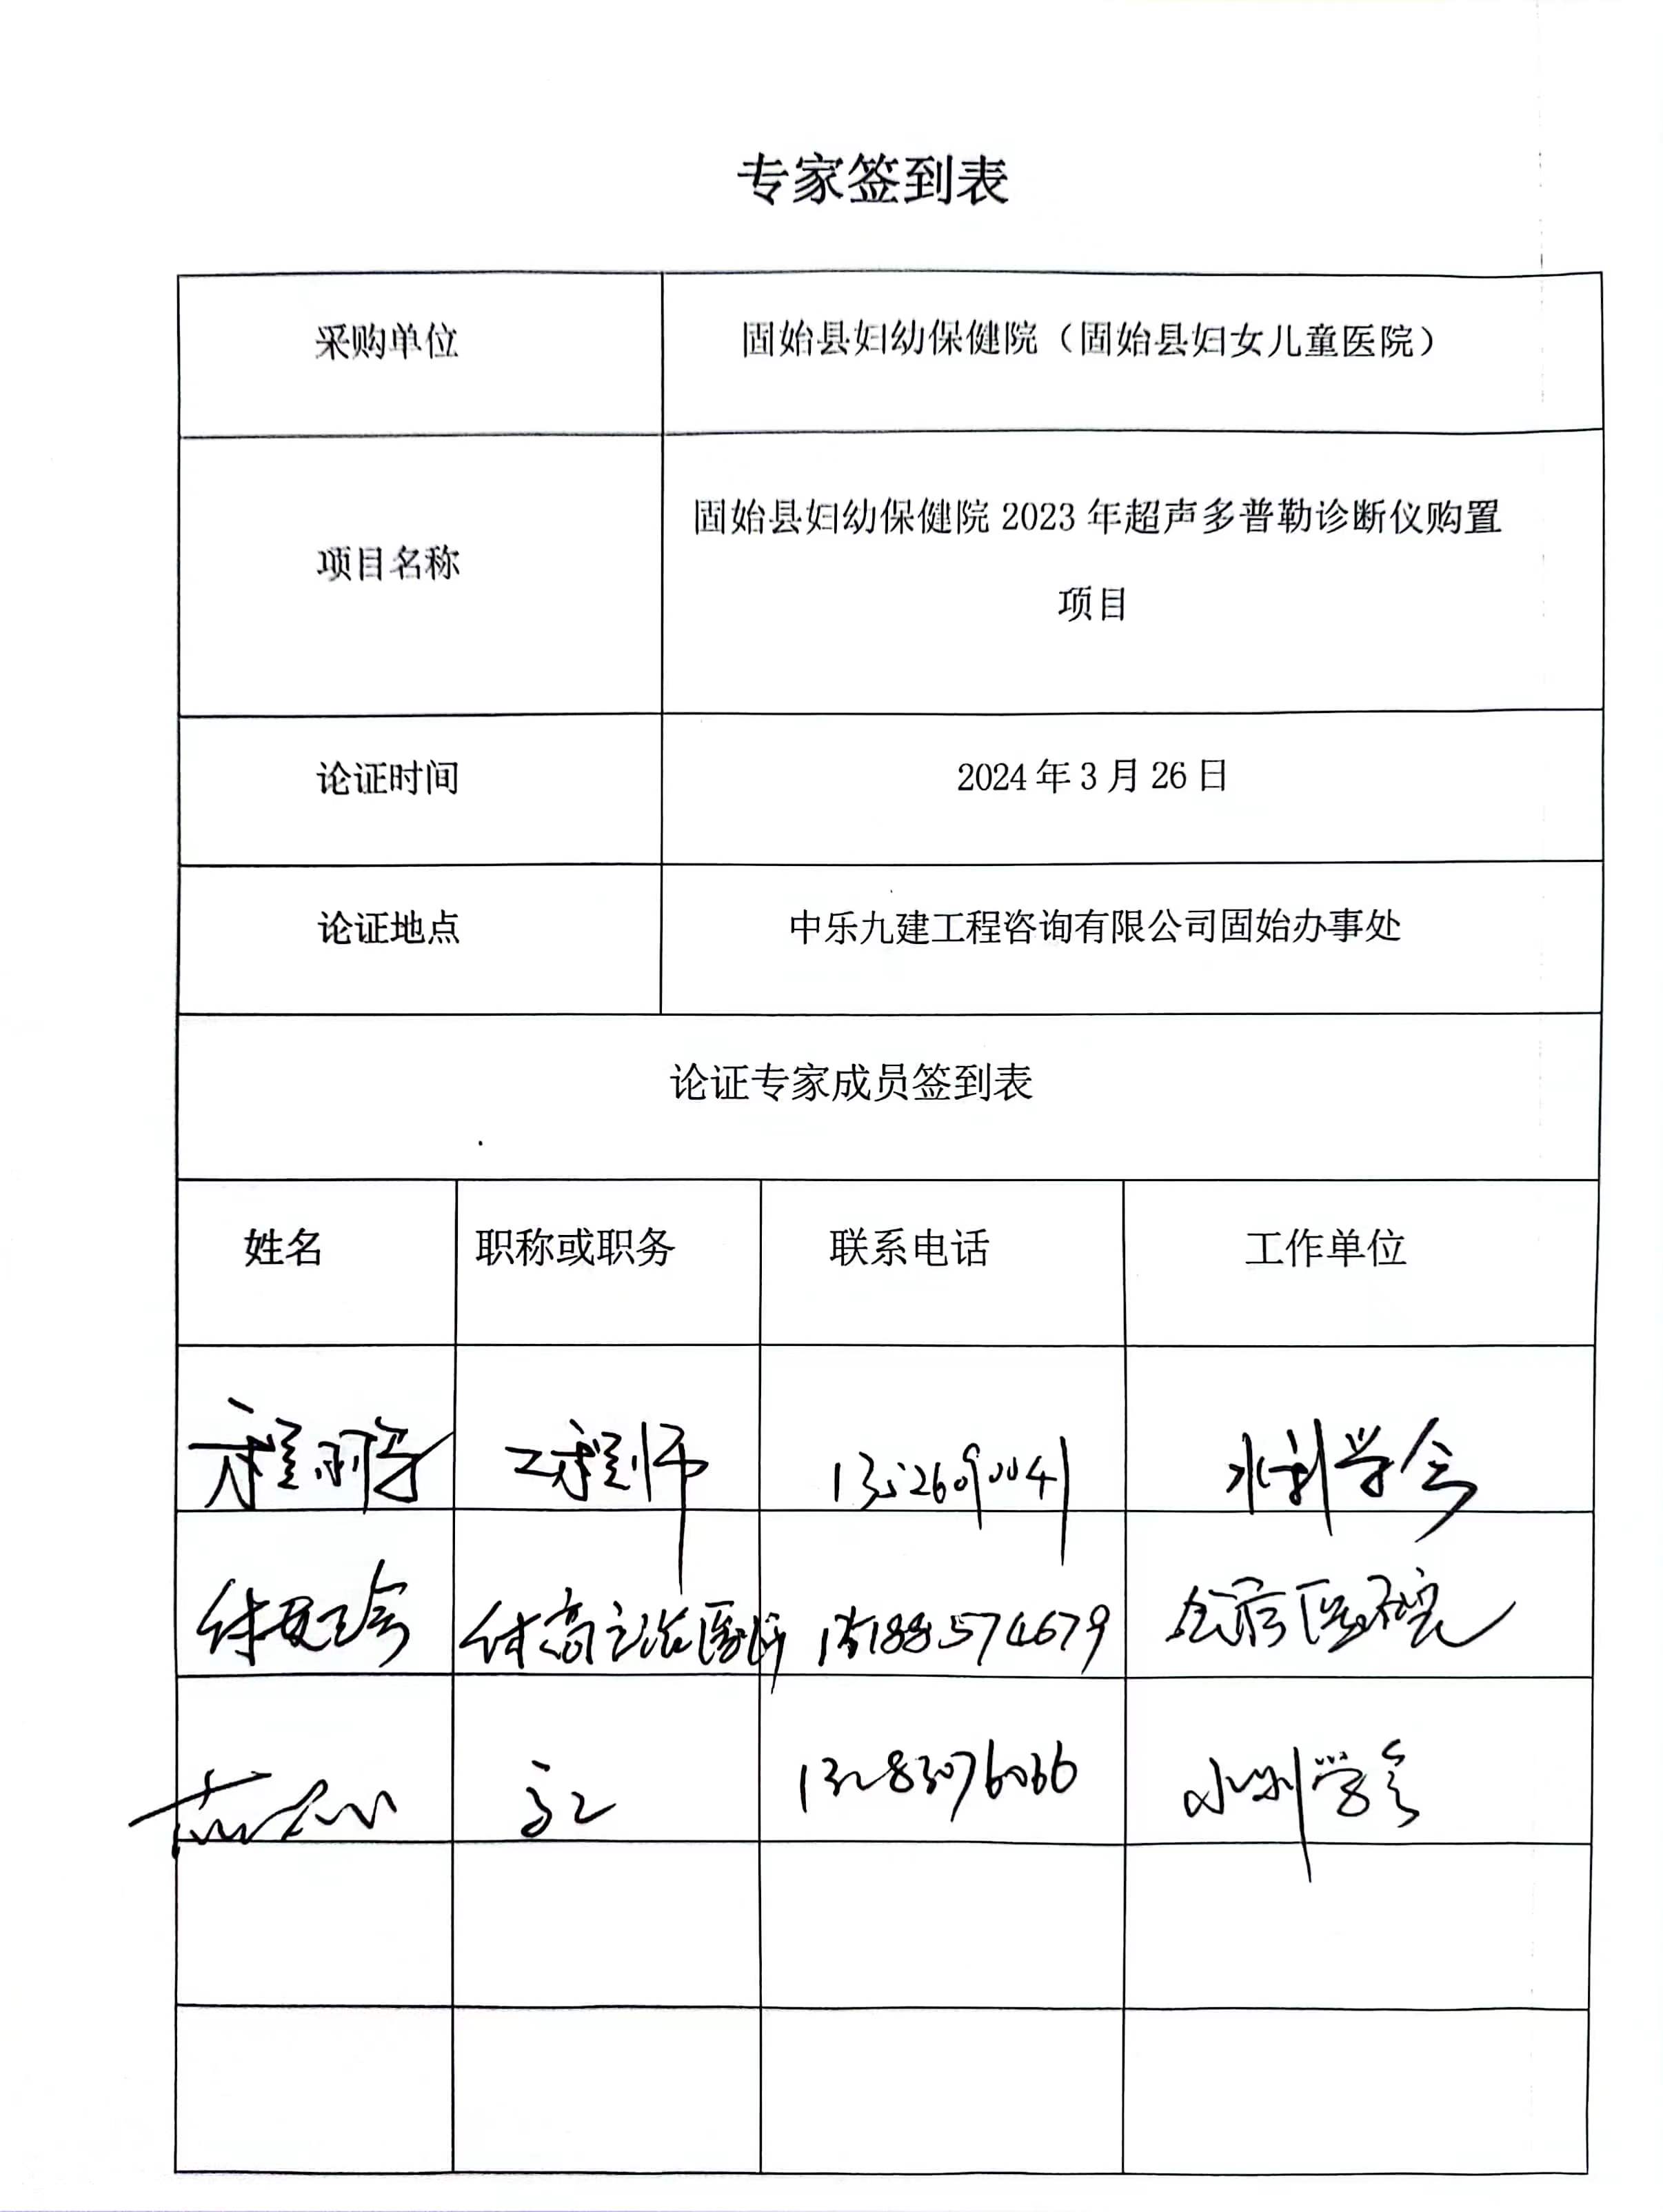 专家签到表
采购单位
固始县妇幼保健院（固始县妇女儿童医院）
项目名称
固始县妇幼保健院 2023 年超声多普勒诊断仪购置
项目
论证时间
2024 年 3 月 26 日
论证地点
中乐九建工程咨询有限公司固始办事处
论证专家成员签到表
姓名 职称或职务 联系电话 工作单位
工程师 13526090041 水利学会
高工 水利学会